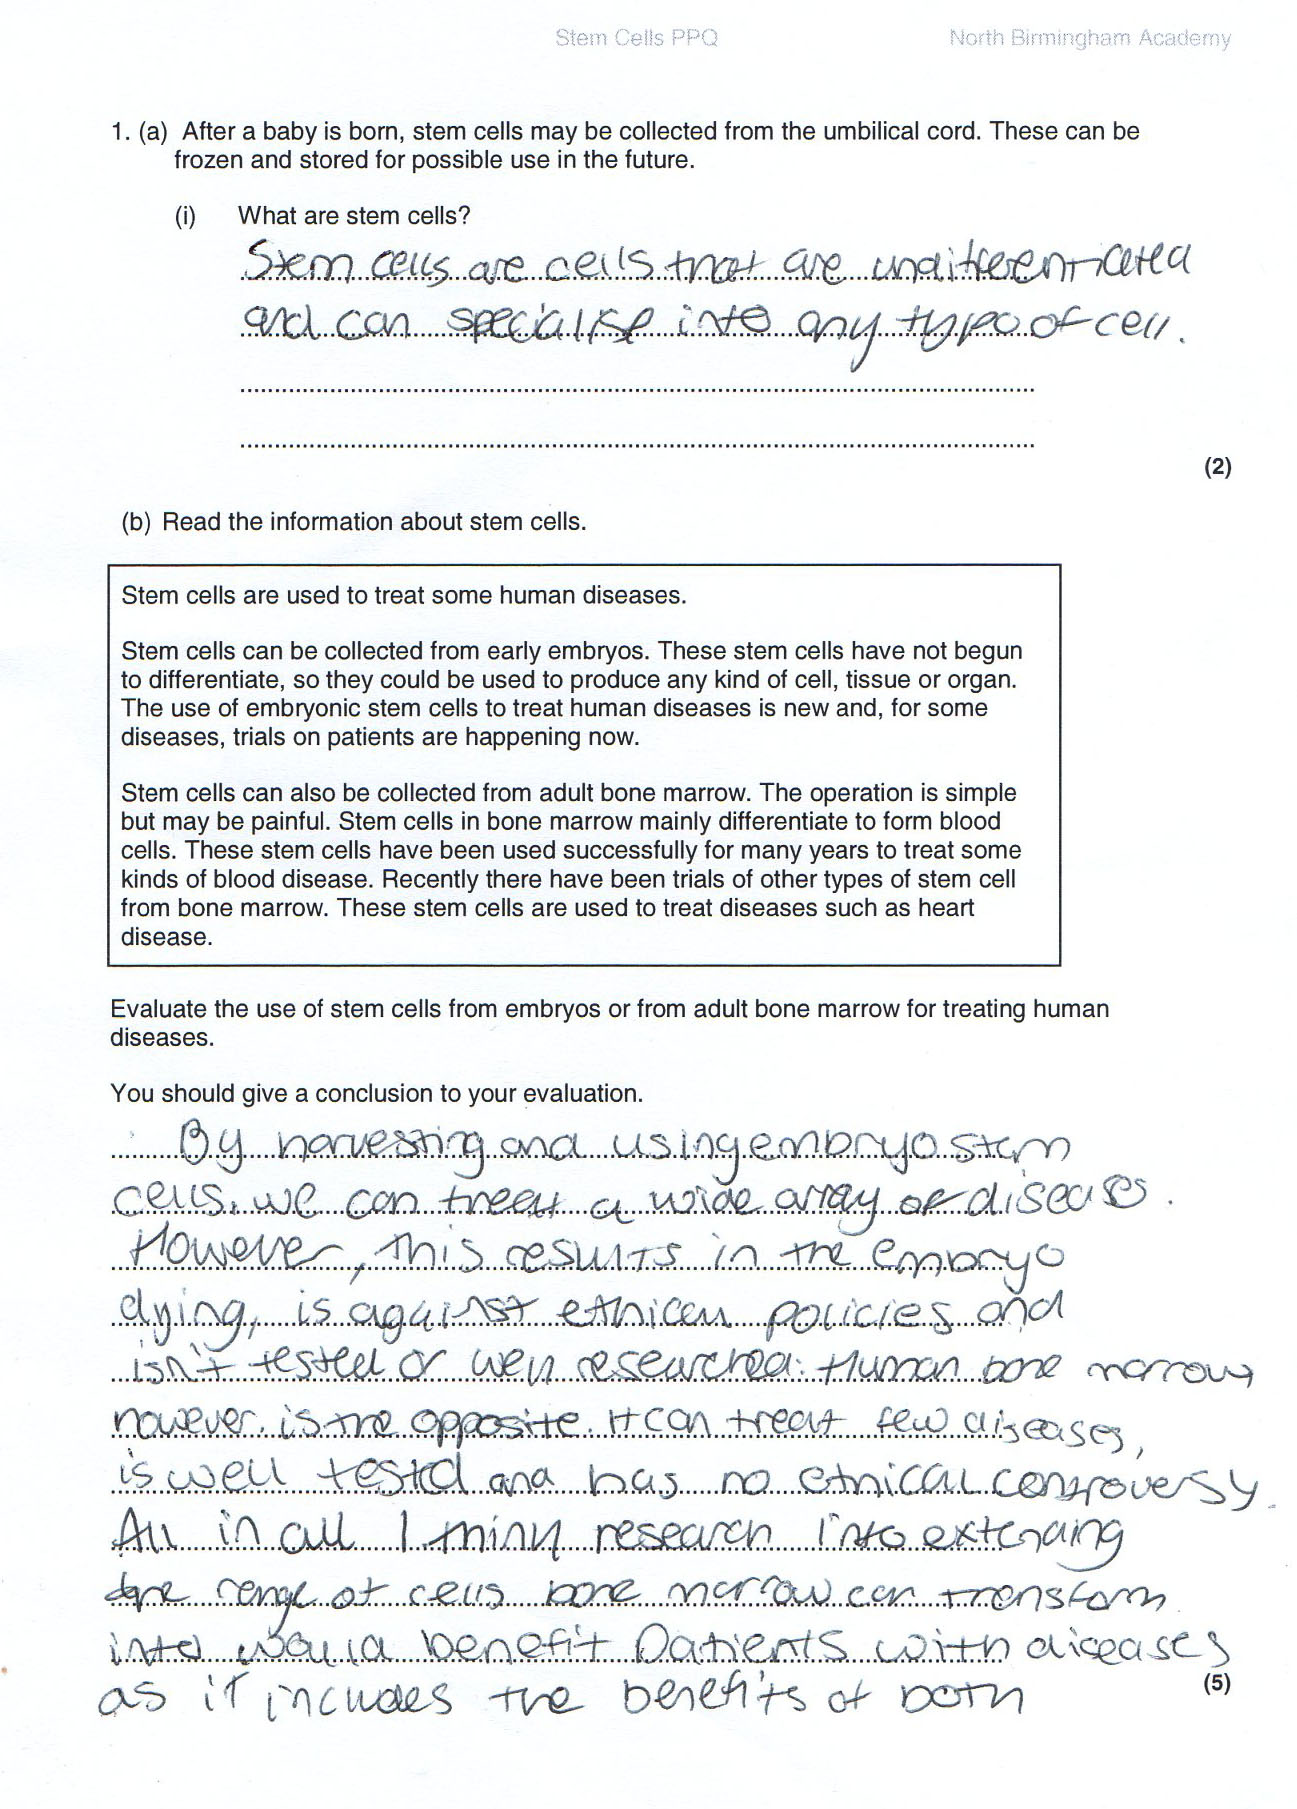 Stem Cells PPQ North Birmingham Academy
1. (a) After a baby is born, stem cells may be collected from the umbilical cord. These can be
frozen and stored for possible use in the future.
(i) What are stem cells?
Stem cells are cells that are undifferenticated
and can specialise into any type of cell.
(2)
(b) Read the information about stem cells.
Stem cells are used to treat some human diseases.
Stem cells can be collected from early embryos. These stem cells have not begun
to differentiate, so they could be used to produce any kind of cell, tissue or organ.
The use of embryonic stem cells to treat human diseases is new and, for some
diseases, trials on patients are happening now.
Stem cells can also be collected from adult bone marrow. The operation is simple
but may be painful. Stem cells in bone marrow mainly differentiate to form blood
cells. These stem cells have been used successfully for many years to treat some
kinds of blood disease. Recently there have been trials of other types of stem cell
from bone marrow. These stem cells are used to treat diseases such as heart
disease.
Evaluate the use of stem cells from embryos or from adult bone marrow for treating human
diseases.
You should give a conclusion to your evaluation.
By harvesting and using embryo stem
cells, we can treat a wide array of diseases.
However, this results in the embryo
dying, is against ethical policies and
isn't tested or well researched. Human bone marrow
however, is the opposite. It can treat few diseases,
is well tested and has no ethical controversy.
All in all I think research into extending
the range of cells bone marrow can transform
into would benefit patients with diseases
(5)
as it includes the benefits of both